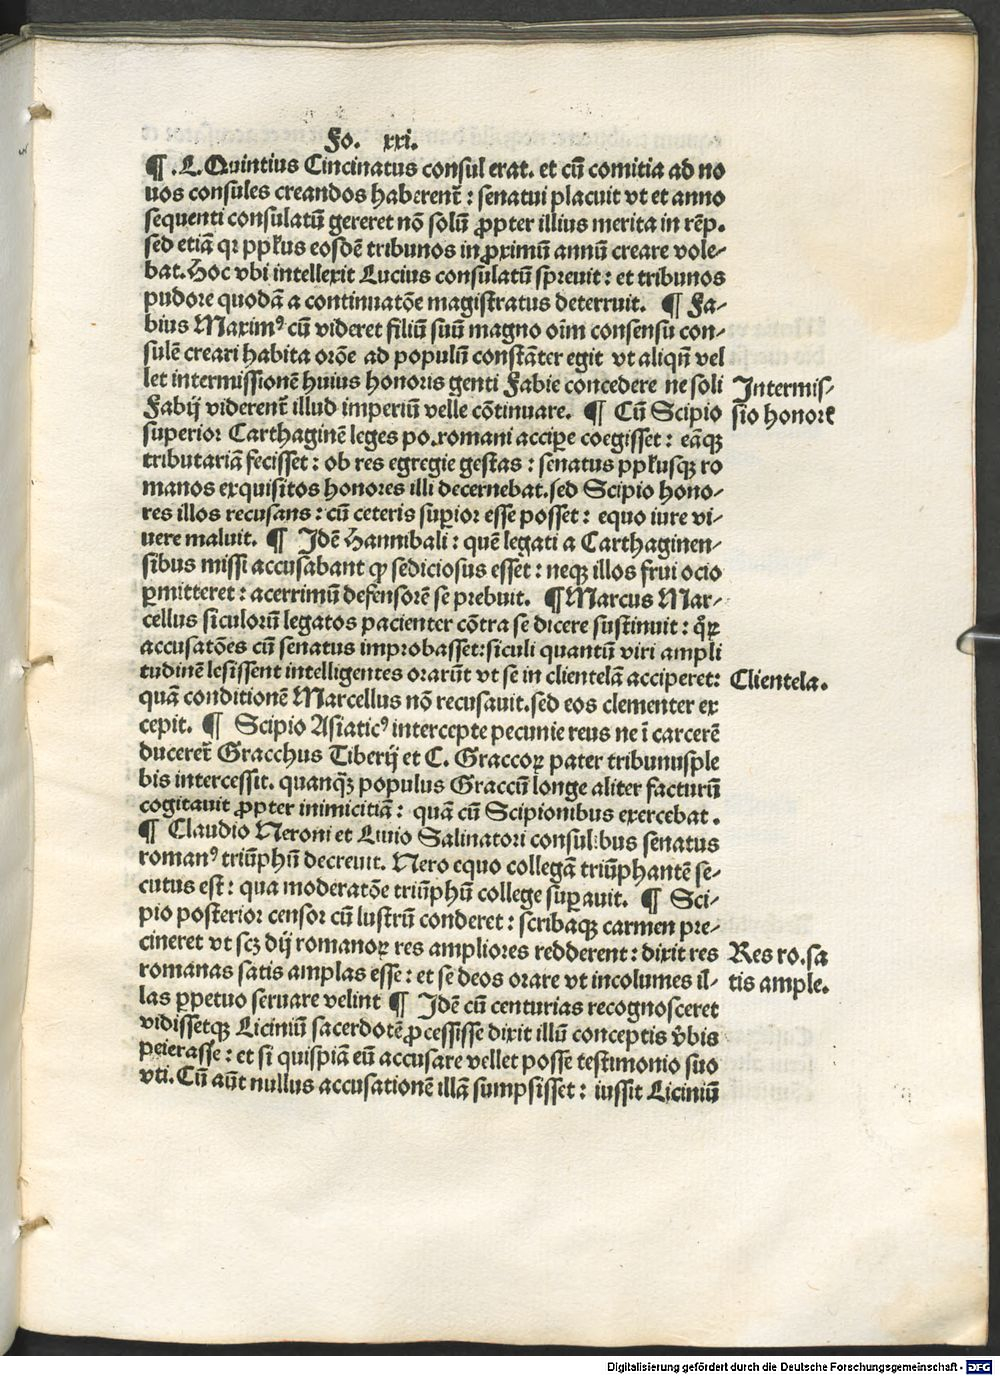 Fo. xxi.
¶ .L. Quintius Cincinatus consul erat. et cū comitia ad no
uos consules creandos haberent̄ : senatui placuit vt et anno
sequenti consulatū gereret nō solū ꝓpter illius merita in rēp.
sed etiā qꝛ ppl̄us eosdē tribunos in ꝓximū annū creare vole-
bat. Hoc vbi intellexit Lucius consulatū spreuit : et tribunos
pudore quodā a continuatōe magistratus deterruit. ¶ Fa-
bius Maximꝰ cū videret filiū suū magno oīm consensu con-
sulē creari habita orōe ad populū constāter egit vt aliqn̄ vel
let intermissionē huius honoris genti Fabie concedere ne soli
Intermis-
Fabij viderent̄ illud imperiū velle cōtinuare. ¶ Cū Scipio
sio honore
superior Carthaginē leges po. romani accipe coegisset : eāqꝫ
tributariā fecisset : ob res egregie gestas : senatus ppl̄usqꝫ ro
manos exquisitos honores illi decernebat. sed Scipio hono-
res illos recusans : cū ceteris suꝑior esse posset : equo iure vi-
uere maluit. ¶ Idē Hannibali : quē legati a Carthaginen-
sibus missi accusabant ꝙ sediciosus esset : neqꝫ illos frui ocio
ꝑmitteret : acerrimū defensorē se prebuit. ¶ Marcus Mar-
cellus siculorū legatos pacienter cōtra se dicere sustinuit : q̊ꝝ
accusatōes cū senatus improbasset : siculi quantū viri ampli
tudinē lesissent intelligentes orarūt vt se in clientelā acciperet:
Clientela.
quā conditionē Marcellus nō recusauit. sed eos clementer ex
cepit. ¶ Scipio Asiaticꝰ intercepte pecunie reus ne ī carcerē
duceret̄ Gracchus Tiberij et C. Graccoꝝ pater tribunusple
bis intercessit. quanqꝫ populus Graccū longe aliter facturū
cogitauit ꝓpter inimicitiā : quā cū Scipionibus exercebat .
¶ Claudio Neroni et Liuio Salinatori consulibus senatus
romanꝰ triūphū decreuit. Nero equo collegā triūphantē se-
cutus est : qua moderatōe triūphū college suꝑauit. ¶ Sci-
pio posterior censor cū lustrū conderet : scribaqꝫ carmen pre-
cineret vt scꝫ dij romanoꝝ res ampliores redderent : dixit res
Res ro. sa
romanas satis amplas esse : et se deos orare vt incolumes il-
tis ample.
las ꝑpetuo seruare velint ¶ Idē cū centurias recognosceret
vidissetqꝫ Liciniū sacerdotē ꝓcessisse dixit illū conceptis v̄bis
peierasse : et si quispiā eū accusare vellet posse testimonio suo
vti. Cū aūt nullus accusationē illā sumpsisset : iussit Liciniū
Digitalisierung gefördert durch die Deutsche Forschungsgemeinschaft - DFG